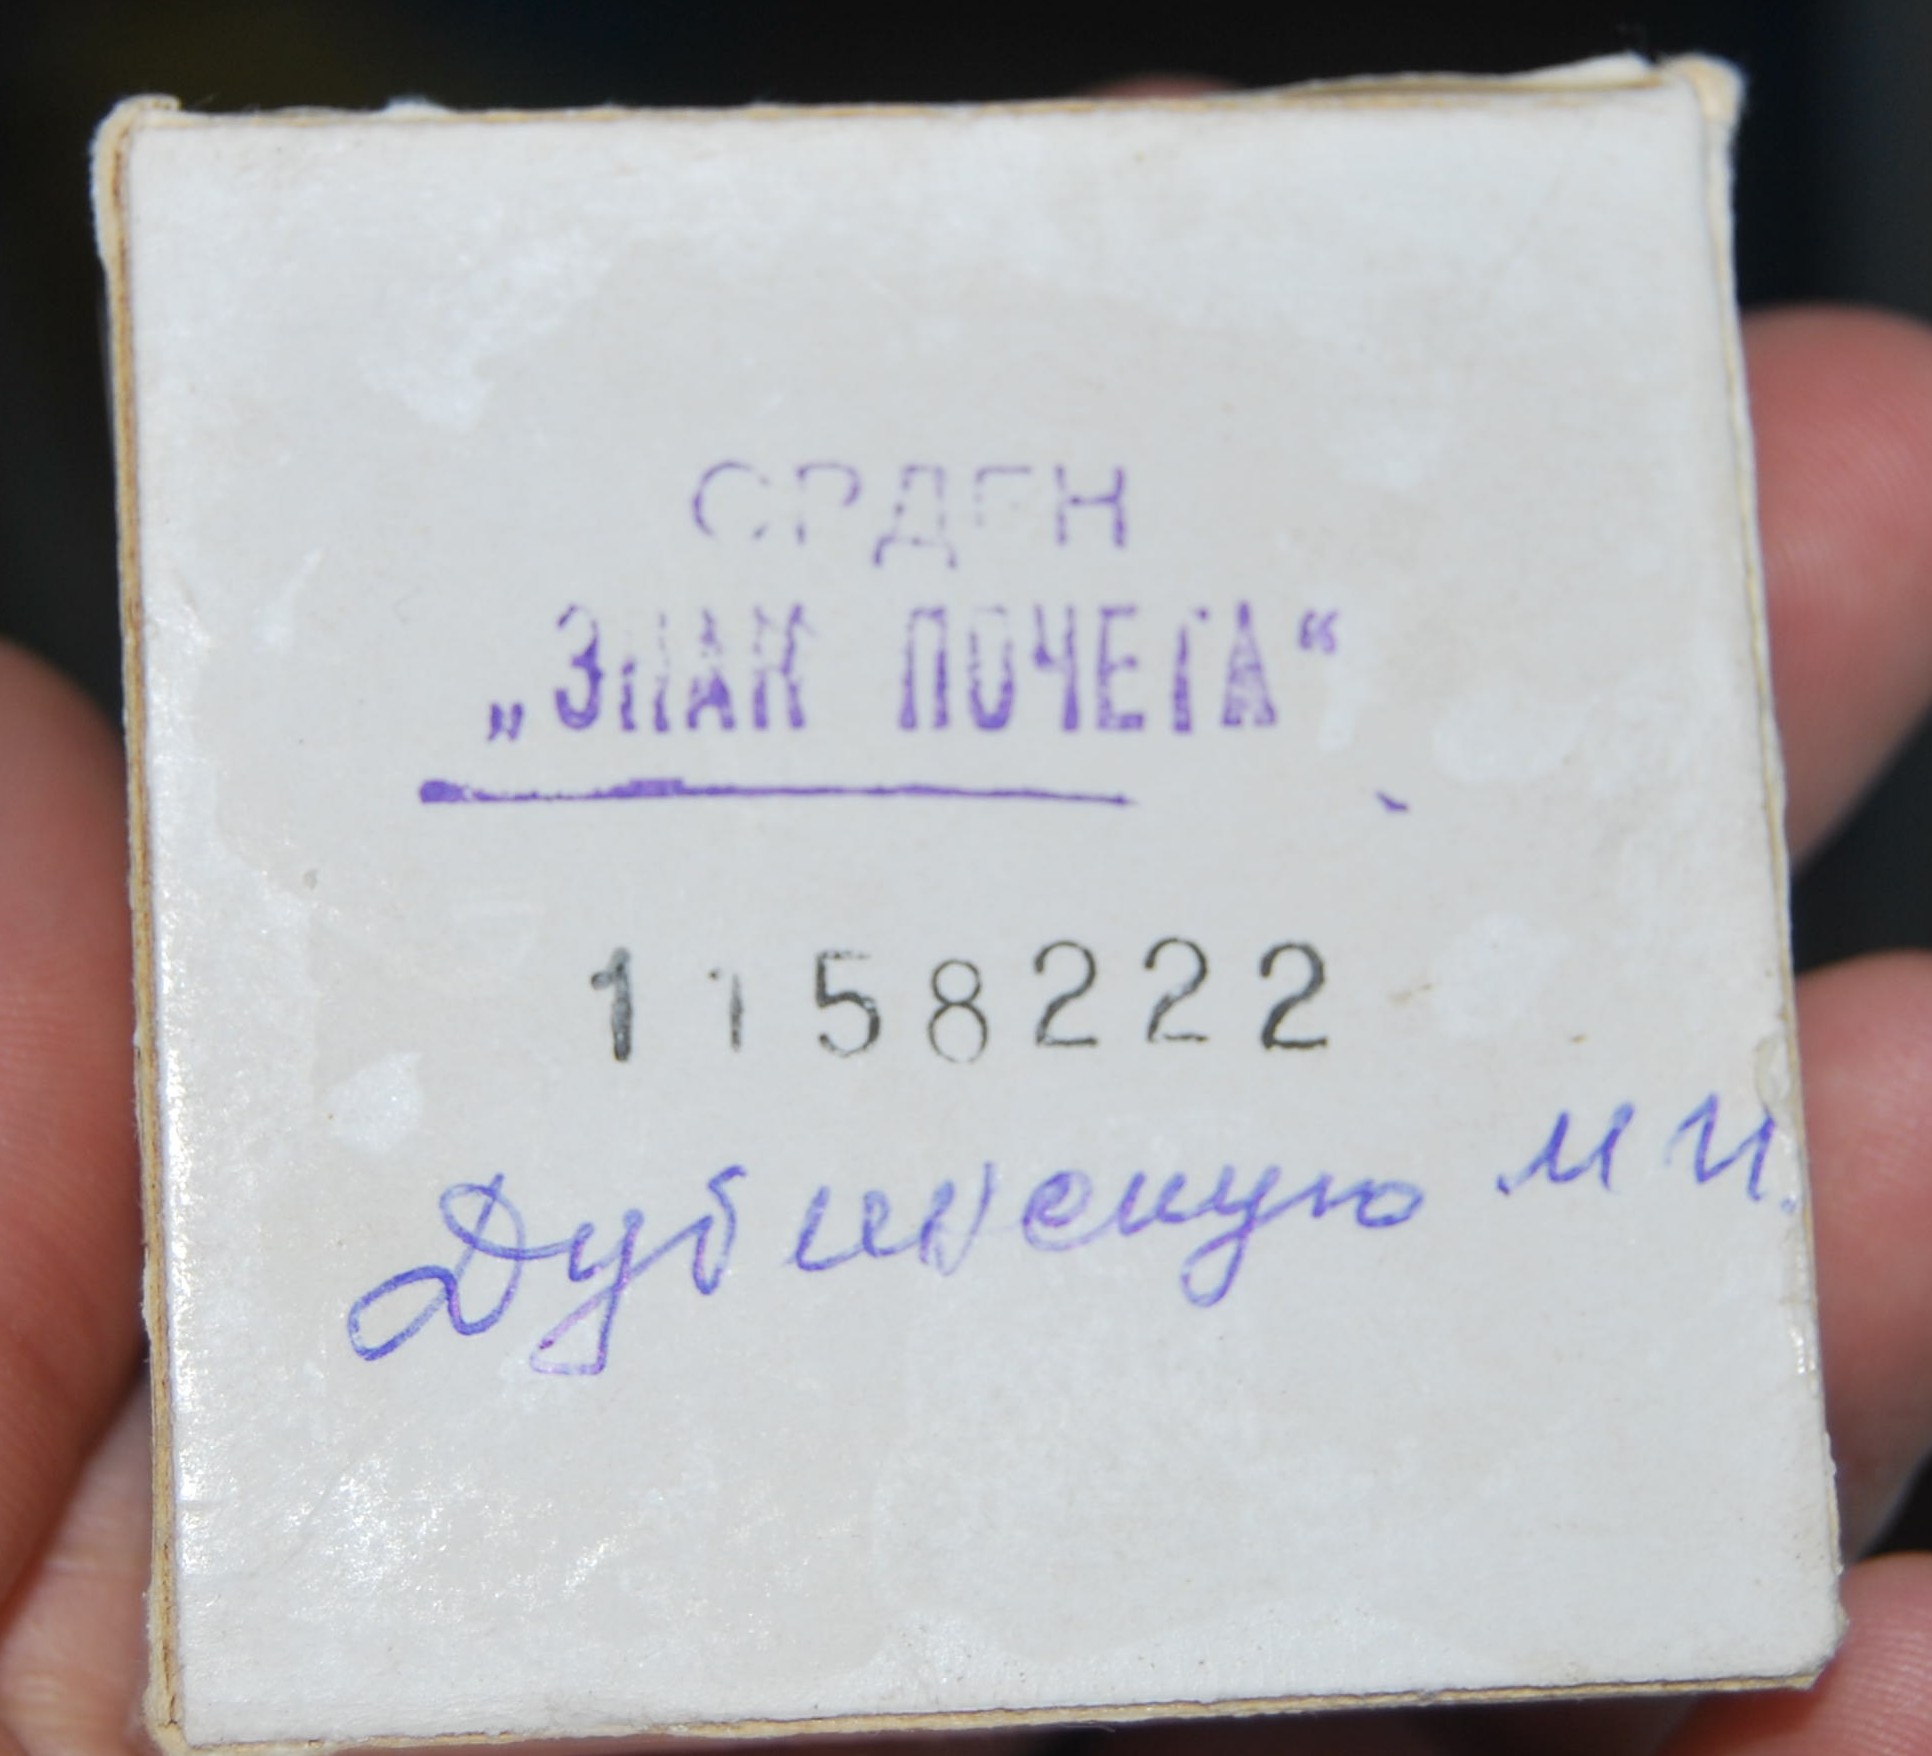 ОРДЕН
„ЗНАК ПОЧЕТА“
1158222
Дубинскую М И.